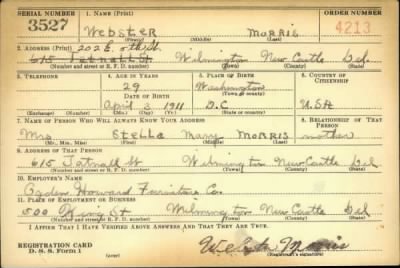 SERIAL NUMBER 1. NAME (Print) ORDER NUMBER
3527 Webster Morris 4213
(First) (Middle) (Last)
2. ADDRESS (Print) 202 E. 6th St.
615 Tatnall St. Wilmington New Castle Del.
(Number and street or R. F. D. number) (Town) (County) (State)
3. TELEPHONE 4. AGE IN YEARS 5. PLACE OF BIRTH 6. COUNTRY OF CITIZENSHIP
29 Washington
DATE OF BIRTH (Town or county)
April 3 1911 D.C U.S.A
(Exchange) (Number) (Mo.) (Day) (Yr.) (State or country)
7. NAME OF PERSON WHO WILL ALWAYS KNOW YOUR ADDRESS 8. RELATIONSHIP OF THAT PERSON
Mrs Stella Mary Morris mother
(Mr., Mrs., Miss) (First) (Middle) (Last)
9. ADDRESS OF THAT PERSON
615 Tatnall St Wilmington New Castle Del
(Number and street or R. F. D. number) (Town) (County) (State)
10. EMPLOYER'S NAME
Ogden Howard Furniture Co.
11. PLACE OF EMPLOYMENT OR BUSINESS
500 King St Wilmington New Castle Del
(Number and street or R. F. D. number) (Town) (County) (State)
I AFFIRM THAT I HAVE VERIFIED ABOVE ANSWERS AND THAT THEY ARE TRUE.
REGISTRATION CARD Webster Morris
D. S. S. Form 1 (over) (Registrant's signature)